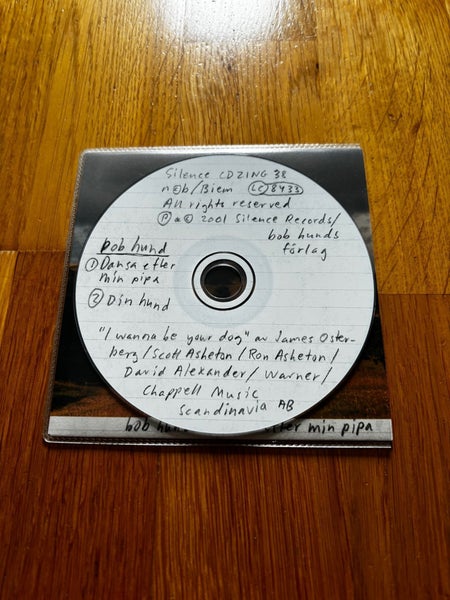 Silence CDZING 38
n©b/Biem LC 8433
All rights reserved
Ⓟ & © 2001 Silence Records/
bob hunds
förlag
bob hund
① Dansa efter
min pipa
② Din hund
"I wanna be your dog" av James Oster-
berg/Scott Asheton/Ron Asheton/
David Alexander/Warner/
Chappell Music
Scandinavia AB
bob hun
efter min pipa